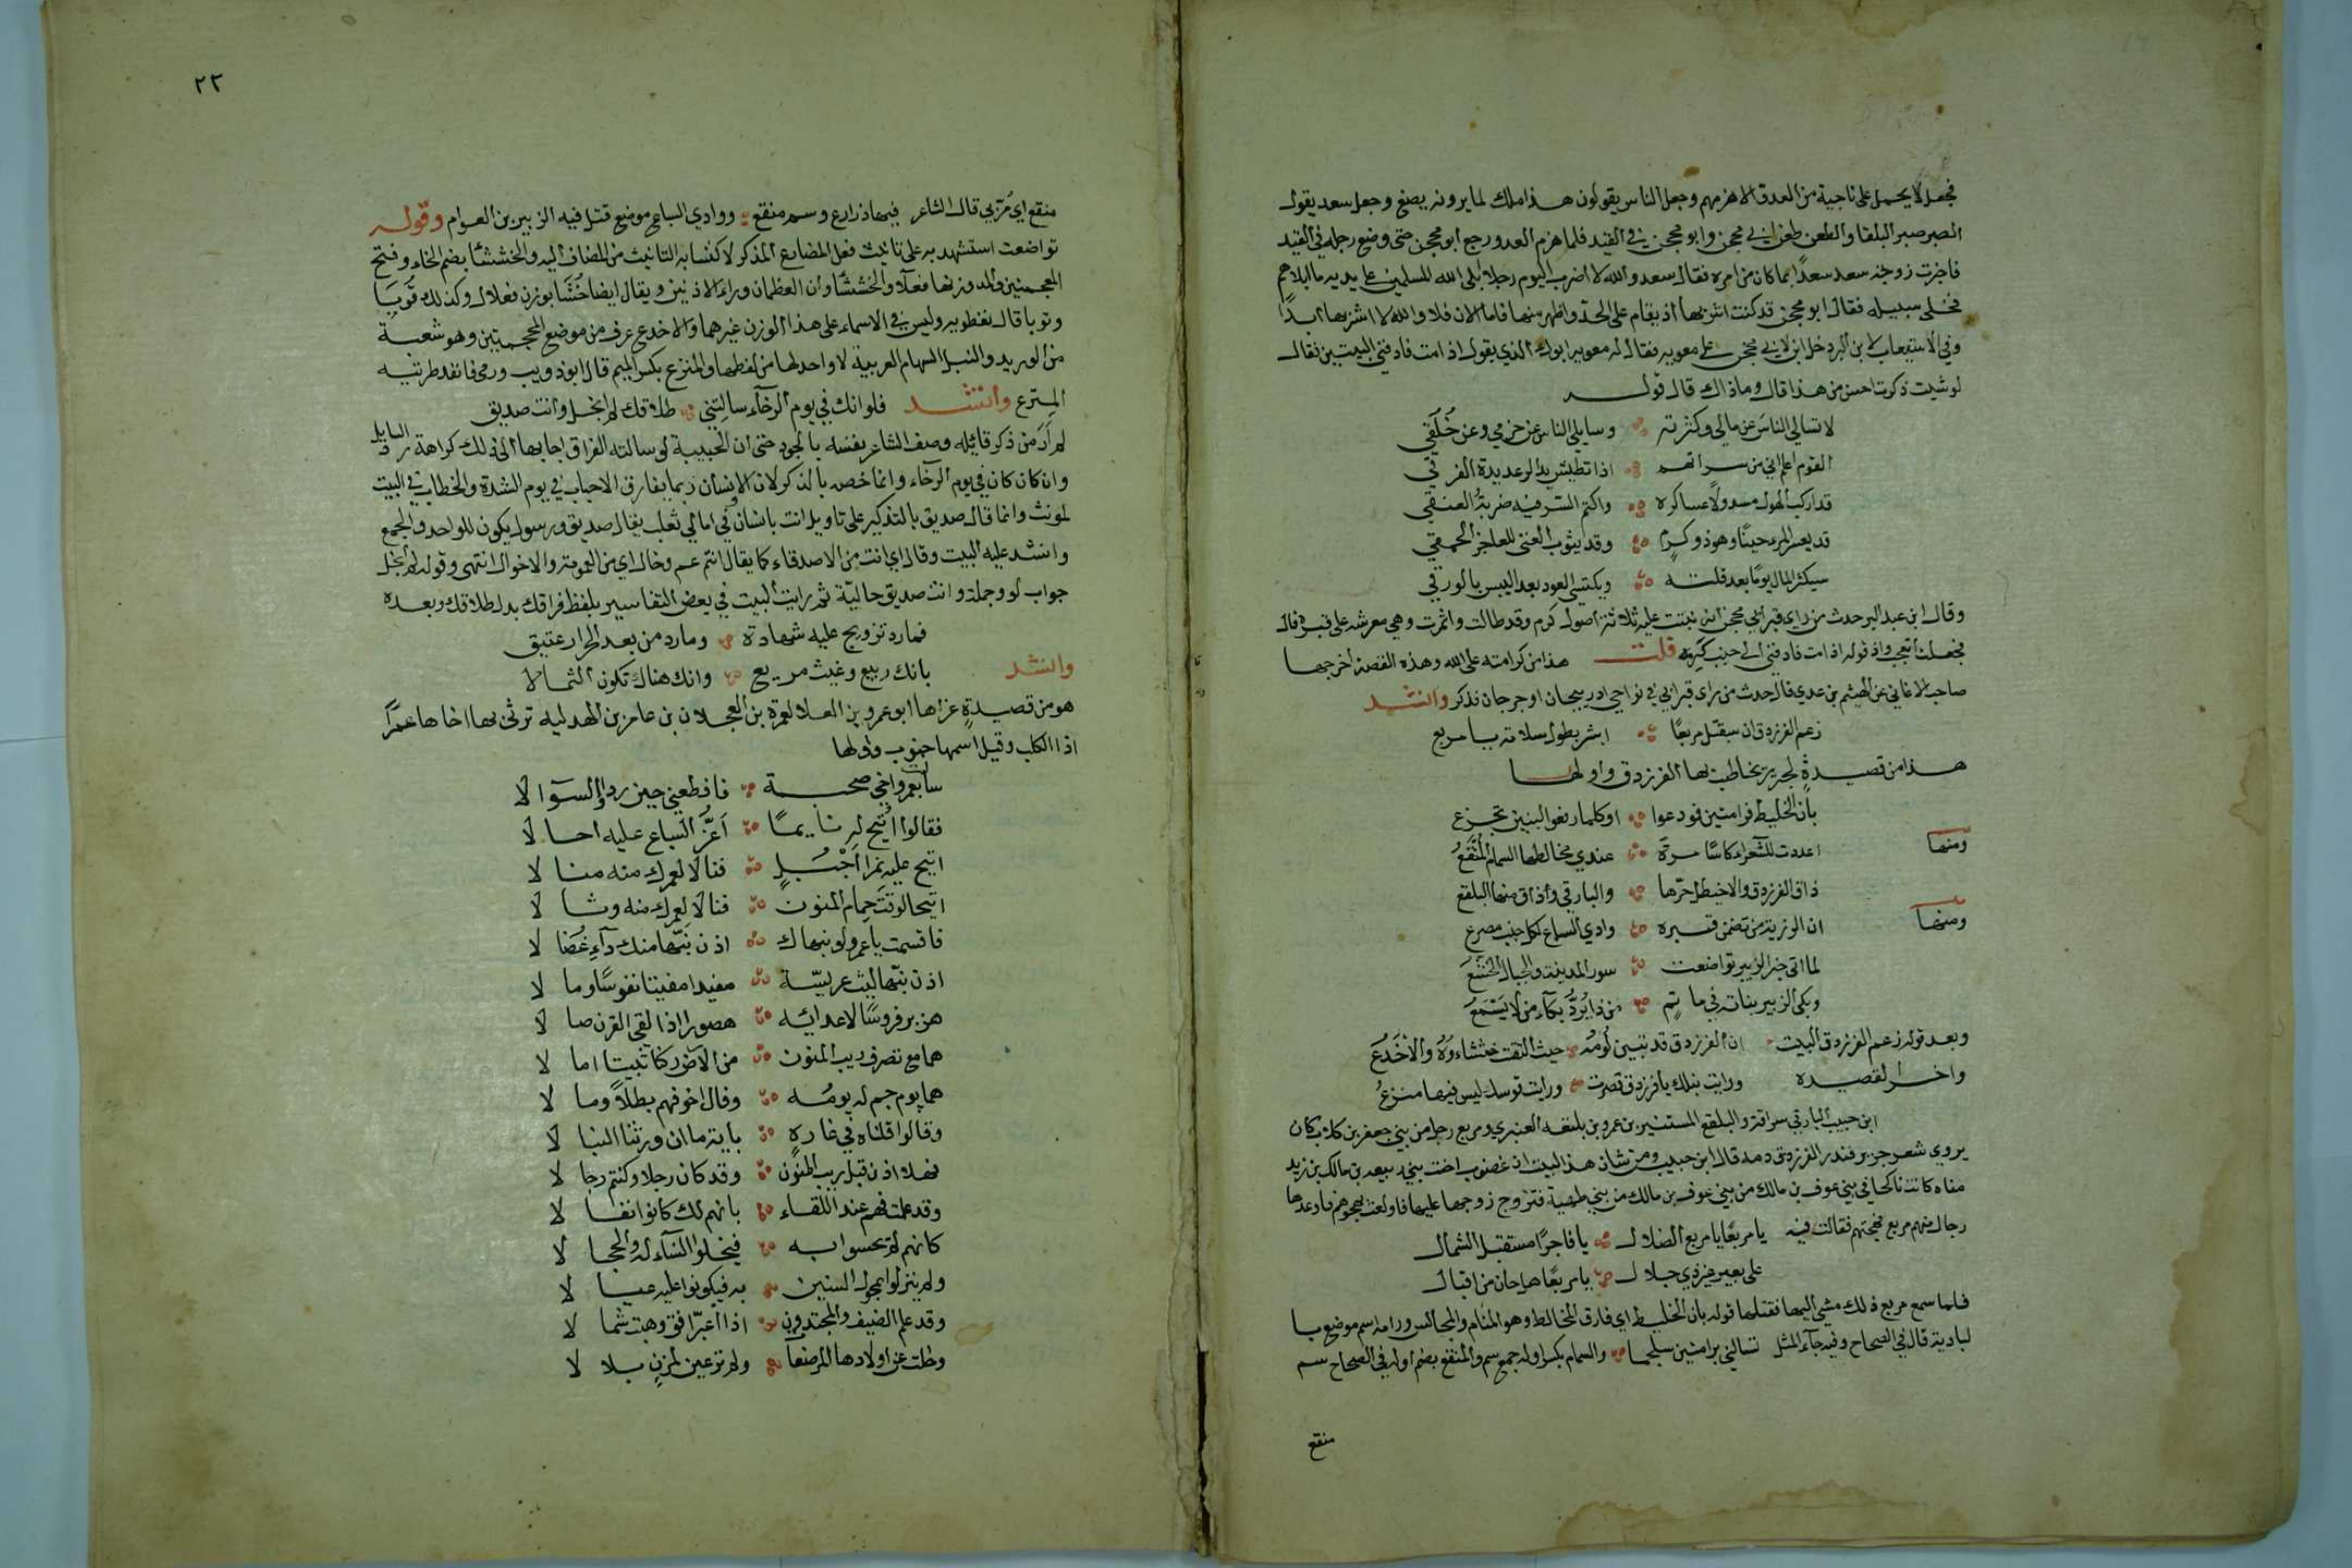 فجعل لا يحمل على ناحية من العدو الا هزمهم وجعل الناس يقولون هذا ملك لما يرونه يصنع وجعل سعد يقول
الصبر صبر البلقا والطعن طعن ابي محجن وابو محجن في القيد فلما هزم العدو رجع ابو محجن حتى وضع رجله في القيد
فاخبرت زوجة سعد سعدًا بما كان من امره فقال سعد والله لا اضرب اليوم رجلا ابلى الله للمسلمين على يديه ما ابلاهم
فخلى سبيله فقال ابو محجن قد كنت اشربها اذ يقام على الحد واطهر منها فاما الان فلا والله لا اشربها ابدًا
وفي الاستيعاب لابن البر دخل ابن لابي محجن على معويه فقال له معويه ابوك الذي يقول اذا مت فادفني البيتين فقال
لو شيت ذكرت احسن من هذا قال وما ذاك قال قوله
لا تسالي الناس عن مالي وكثرته وسايلي الناس عن حزمي وعن خُلُقي
القوم اعلم اني من سراتهم اذا تطيش يد الرعديدة الفرق
قد اركب الهول مسدولًا عساكره واكتم السر فيه ضربة العنق
قد يعسر المرء حينًا وهو ذو كرم وقد يثوب الغنى للعاجز الحمق
سيكثر المال يومًا بعد قلته ويكتسي العود بعد اليبس بالورق
وقال ابن عبد البر حدث من راى قبر ابي محجن انه نبتت عليه ثلاثة اصول كرم وقد طالت واثمرت وهي معرشة على قبره قال
فجعلت اتعجب واذكر قوله اذا مت فادفني الى جنب كرمة قلت هذا من كرامته على الله وهذه القصة اخرجها
صاحب الاغاني عن الهيثم بن عدي قال حدث من راى قبر ابي في نواحي ادربيجان او جرجان فذكر وانشد
زعم الفرزدق ان سيقتل مربعًا ابشر بطول سلامة يا مربع
هذا من قصيدةٍ لجرير يخاطب بها الفرزدق واولها
بان الخليط برامتين فودعوا اوكلما رفعوا لبين تجزع
ومنها اعددت للشعراء كاسًا مرة عندي مخالطها السمام المُنْقَعُ
ذاق الفرزدق والاخيطل حرّها والبارقي وذاق منها البلقع
ومنها ان الرزية من تضمن قبره وادي السباع لكل جنب مصرع
لما اتى خبر الزبير تواضعت سور المدينة والجبال الخشع
وبكى الزبير بناته في ماتم من ذا يرد بكاء من لا يَسْمَعُ
وبعد قوله زعم الفرزدق البيت ان الفرزدق قد تبين لُومُه حيث التقت خششاوُهُ والاخْدَعُ
واخر القصيده ورايت نبلك يا فرزدق قصرت ورايت قوسك ليس فيها منزعُ
ابن حبيب البارقي سراقة والبلقع المستنير بن عمرو بن بلتعه العنبري ومربع رجل من بني جعفر بن كلاب كان
يروي شعر جرير فنذر الفرزدق دمه قال ابن حبيب ومن شان هذا البيت ان غضوب اخت بني ربيعه بن مالك بن زيد
مناه كانت ناكحا في بني عوف بن مالك من بني عوف بن مالك من بني طهية فتزوج زوجها عليها فاولعت بهجوهم فاوعدها
رجال منهم مربع فهجتهم فقالت فيه يا مربعًا يا مربع الضلال يا فاجرًا مستقبل الشمال
على بعير غير ذي جلال يا مربعًا هل حان من اقبال
فلما سمع مربع ذلك مشى اليها فقتلها قوله بان الخليط اي فارق المخالط وهو المنام والمجالس ورامة اسم موضع با
لبادية قال في الصحاح وفيه جاء المثل تسالني برامتين سلجما والسمام بكسر اوله جمع سم والمنقع بضم اوله في الصحاح سم
منقع
٢٢
منقع اي مُربى قال الشاعر فيها ذراريح وسم منقع ووادي السباع موضع قتل فيه الزبير بن العوام وقوله
تواضعت استشهد به على تانيث فعل المضاف المذكر لاكتسابه التانيث من المضاف اليه والخششا بضم الخاء وفتح
المعجمتين والمد وزنها فعلاء والخششاوان العظمان وراء الاذنين ويقال ايضا خُشَّا بوزن فعلال وكذلك قُوَبَا
وتوبا قال نفطويه وليس في الاسماء على هذا الوزن غيرهما والاخدع عرف من موضع المحجمتين وهو شعبة
من الوريد والنبل السهام العربية لا واحد لها من لفظها والمنزع بكسر الميم قال ابو ذويب ورمى فانفد طرتيه
المنزع وانشد فلو انك في يوم الرخاء سالتني طلاقك لم ابخل وانت صديق
لم اَرَ من ذكر قائله وصف الشاعر نفسه بالجود حتى ان الحبيبة لو سالته الفراق اجابها الى ذلك كراهة رد السايل
وان كان كان في يوم الرخاء وانما خصه بالذكر لان الانسان ربما يفارق الاحباب في يوم الشدة والخطاب في البيت
لمونث وانما قال صديق بالتذكير على تاويل انت بانسان وفي امالي ثعلب يقال صديق ورسول يكون للواحد والجمع
وانشد عليه البيت وقال اي انت من الاصدقاء كما يقال انتم عم وخال اي من العمومة والاخوال انتهى وقوله لم ابخل
جواب لو وجملة وانت صديق حاليّة ثم رايت البيت في بعض التفاسير بلفظ فراقك بدل طلاقك وبعده
فما رد تزويج عليه شهادة وما رد من بعد الحرار عتيق
وانشد بانك ربيع وغيث مريع وانك هناك تكون الثمالا
هو من قصيدةٍ عزاها ابو عمرو بن العلا لعمرة بن العجلان بن عامر بن الهدليه ترثي بها اخاها عمرًا
اذا الكلب وقيل اسمها جنوب واولها
سالت بعمرو اخي صحبة فافظعني حين ردوا السوالا
فقالوا اُتيح له نايمًا اَعَزُّ السباع عليه احالا
اتيح عليه نمرا اَجْبُلٍ فنالا لعمرك منه منالا
اتيحا لوقت حِمام المنون فنالا لعمرك منه ونالا
فاقسمت يا عمرو لو نبهاك اذن نبها منك داء عُضالا
اذن نبها ليث عريسة مفيدا مفيتا نفوسًا ومالا
هزبر فروسًا لاعدائه هصورا اذا لقي القرن صالا
هما مع تصرف ريب المنون من الارض ركنا ثبيتا امالا
هما يوم حم له يومُه وقال اخو فهم بطلاً ومالا
وقالوا قتلناه في غارةٍ باية ما ان ورثنا النبالا
فهلا اذن قبل ريب المنون وقد كان رجلا وكنتم رجالا
وقد علمت فهم عند اللقاء بانهم لك كانوا نفالا
كانهم لم يحسوا به فيخلوا النساء له والحجالا
ولم ينزلوا بمحول السنين به فيكونوا عليه عيالا
وقد علم الضيف والمجتدون اذا اغبرّ افق وهبت شمالا
وخلت عن اولادها المرضعات ولم تر عين لمزنٍ بلالا